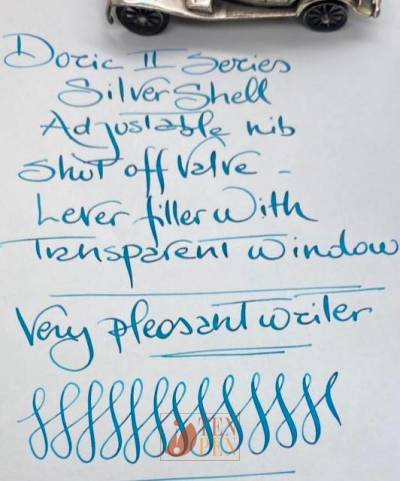 Doric II Series
Silver Shell
Adjustable nib
Shut off Valve -
Lever filler with
Transparent window
Very pleasant writer
TEX
PEN